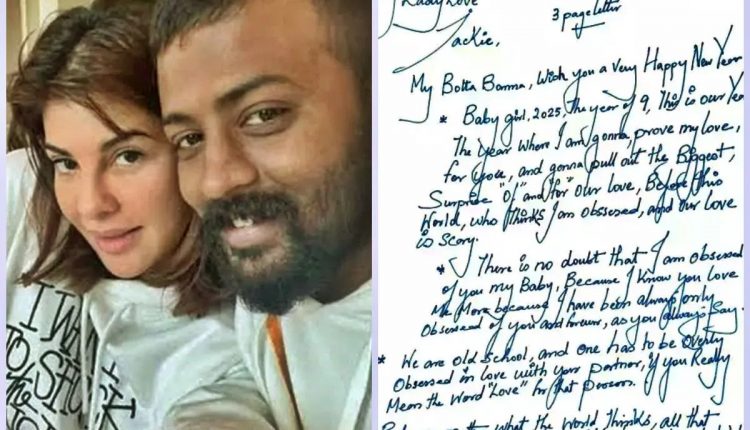 I W
TO SHO
Lady Love
3 page letter
Jackie,
My Botta Bomma, Wish you a very Happy New Year
* Baby girl, 2025, The year of 9, This is our Year
The Year Where I am gonna prove my love,
for you, and gonna pull out the Biggest,
Surprise "of" and "for" our love, Before this
World, who thinks I am obssesed, and our love
is Scary.
* There is no doubt that I am obsessed
of you my Baby, Because I know you love
Me More because I have been always only
Obsessed of you and forever, as you always Say.
* We are old School, and one has to be overly
Obsessed in love with your partner, if you Really
Mean the Word "Love" for that person.
what the World Thinks, all that